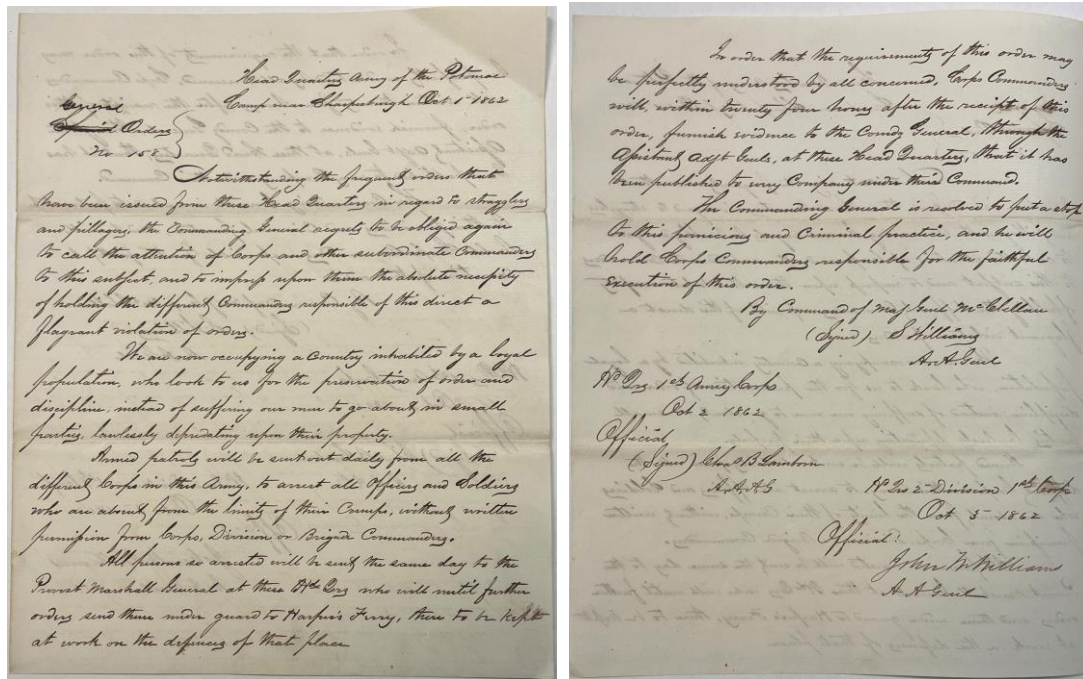 Head Quarters Army of the Potomac
Camp near Sharpsburgh Oct 1st 1862
General
Special Orders
No 158
Notwithstanding the frequent orders that
have been issued from these Head Quarters in regard to stragglers
and pillagers, the Commanding General regrets to be obliged again
to call the attention of Corps and other subordinate Commanders
to this subject, and to impress upon them the absolute necessity
of holding the different Commanders responsible of this direct a
flagrant violation of orders.
We are now occupying a Country inhabited by a loyal
population, who look to us for the preservation of order and
discipline, instead of suffering our men to go about in small
parties, lawlessly depredating upon their property.
Armed patrols will be sent out daily from all the
different Corps in this Army, to arrest all Officers and Soldiers
who are absent from the limits of their Camps, without written
permission from Corps, Division or Brigade Commanders.
All persons so arrested will be sent the same day to the
Provost Marshall General at these Hd Qrs who will until further
orders send them under guard to Harper's Ferry, there to be kept
at work on the defences of that place
In order that the requirements of this order may
be perfectly understood by all concerned, Corps Commanders
will within twenty four hours after the receipt of this
order, furnish evidence to the Comdg General, through the
Assistant Adjt Genls, at these Head Quarters, that it has
been published to every Company under their Command.
The Commanding General is resolved to put a stop
to this pernicious and Criminal practice, and he will
hold Corps Commanders responsible for the faithful
execution of this order.
By Command of Maj Genl McClellan
(Signed) S Williams
A.A. Genl
Hd Qrs 1st Army Corps
Oct 2 1862
Official
(Signed) Chas B Lamborn
A.A.A.G
Hd Qrs 2nd Division 1st Corps
Oct 3 1862
Official:
John W Williams
A A Genl